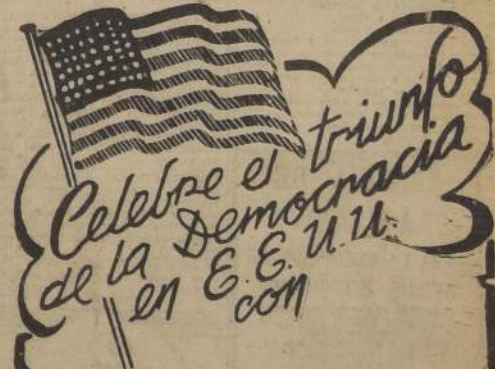 Celebre el triunfo
de la Democracia
en E.E.U.U.
con